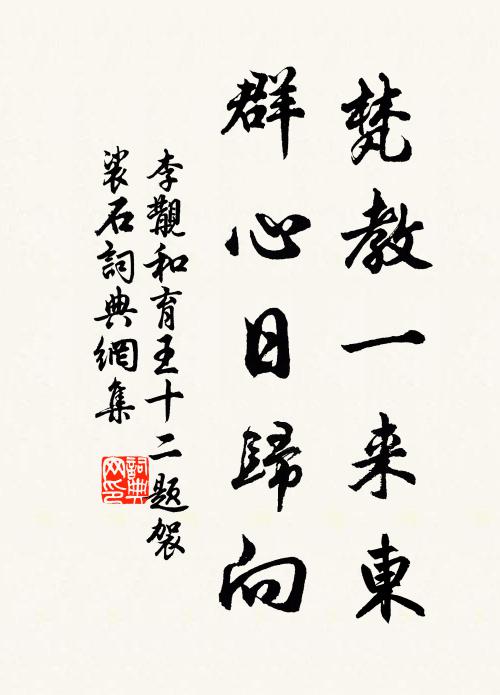 梵教一来東
群心日歸向
李覯和育王十二題袈
裟石詞典網集
詞典
网印